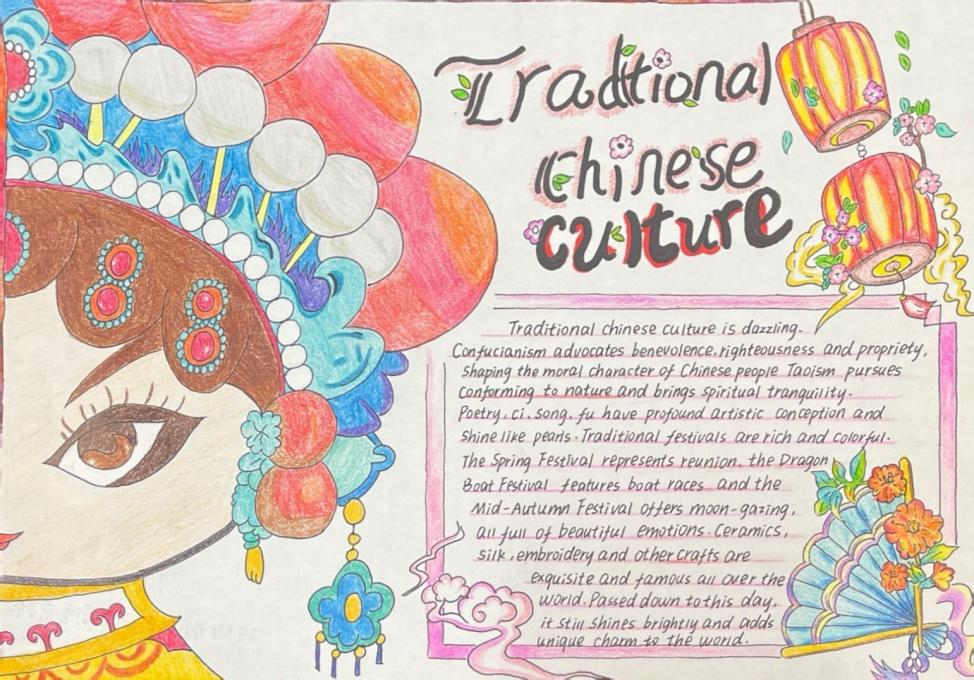 Traditional
Chinese
culture
Traditional chinese culture is dazzling.
Confucianism advocates benevolence, righteousness and propriety,
shaping the moral character of Chinese people Taoism pursues
conforming to nature and brings spiritual tranquility.
Poetry, ci, song, fu have profound artistic conception and
shine like pearls. Traditional festivals are rich and colorful.
The Spring Festival represents reunion, the Dragon
Boat Festival features boat races and the
Mid-Autumn Festival offers moon-gazing,
all full of beautiful emotions. Ceramics,
silk, embroidery and other crafts are
exquisite and famous all over the
world. Passed down to this day,
it still shines brightly and adds
unique charm to the world.